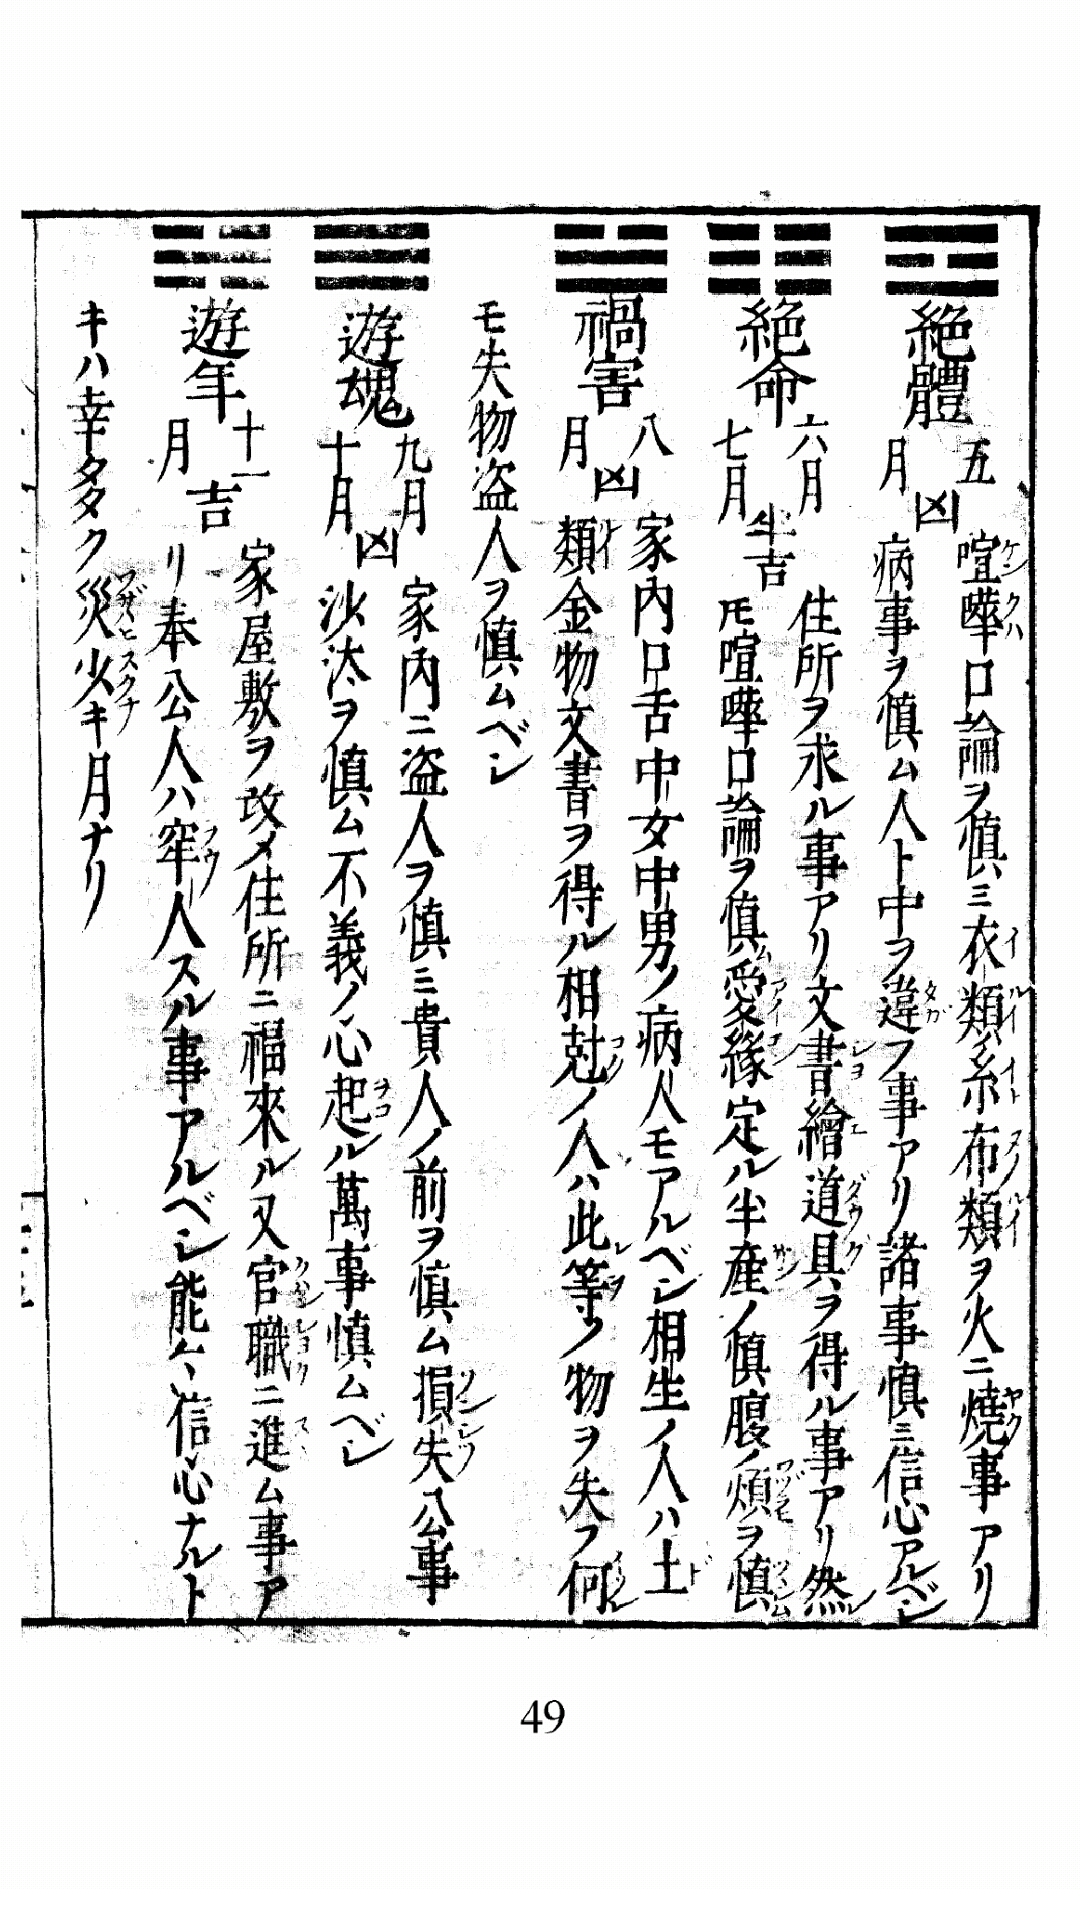 絶體 五月 凶 喧嘩口論ヲ慎ミ衣類糸布類ヲ火ニ燒事アリ
病事ヲ慎ム人ト中ヲ違フ事アリ諸事慎ミ信心アルベシ
絶命 六月 七月 半吉 住所ヲ求ル事アリ文書繪道具ヲ得ル事アリ然
モ喧嘩口論ヲ慎愛縁定ル半産ノ慎腹ノ煩ヲ慎
禍害 八月 凶 家内口舌中女中男ノ病人モアルベシ相生ノ人ハ土
類金物文書ヲ得ル相尅ノ人ハ此等ノ物ヲ失フ何
モ失物盗人ヲ慎ムベシ
遊魂 九月 十月 凶 家内ニ盗人ヲ慎ミ貴人ノ前ヲ慎ム損失公事
沙汰ヲ慎ム不義ノ心起ル萬事慎ムベシ
遊年 十一月 吉 家屋敷ヲ改メ住所ニ福來ル又官職ニ進ム事ア
リ奉公人ハ窂人スル事アルベシ能々信心ナルト
キハ幸タタク災少キ月ナリ
49